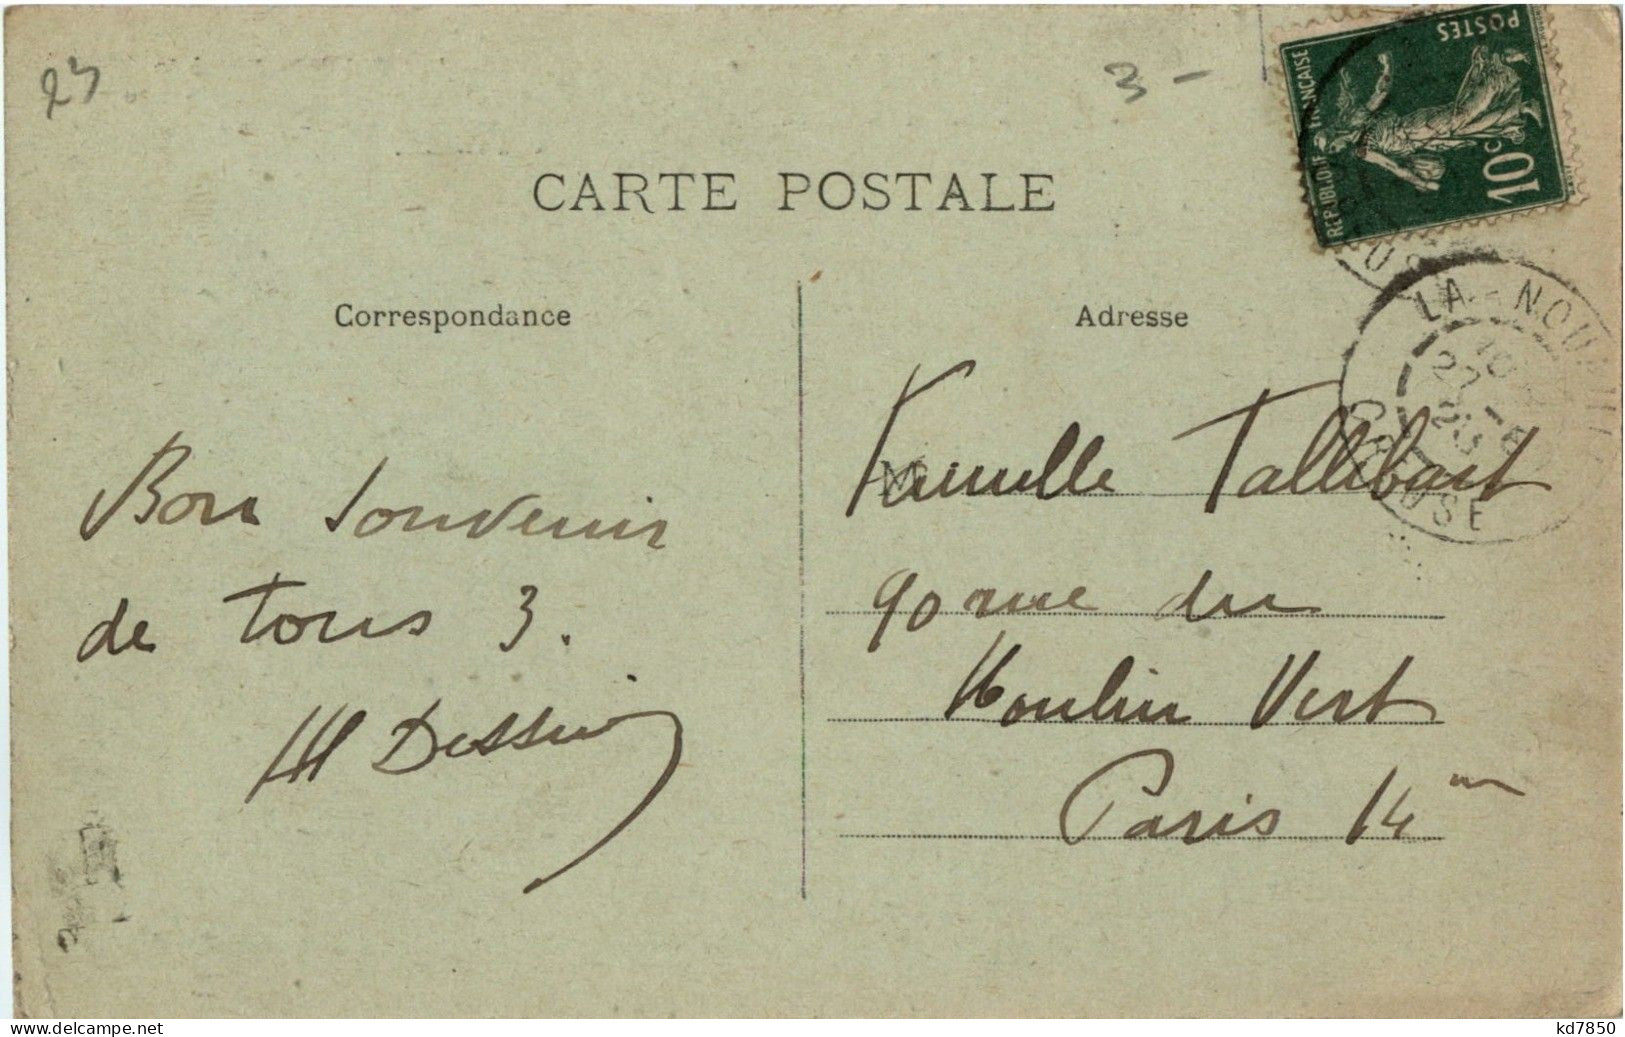 23
3 -
POSTES
10c
REPUBLIQUE FRANÇAISE
CARTE POSTALE
Correspondance
Adresse
LA - NOUAILLE
10
27 - 
23
CREUSE
Bon souvenir
de tous 3.
M Dessin
Famille Tallibart
90 rue du
Moulin Vert
Paris 14me
www.delcampe.net
kd7850